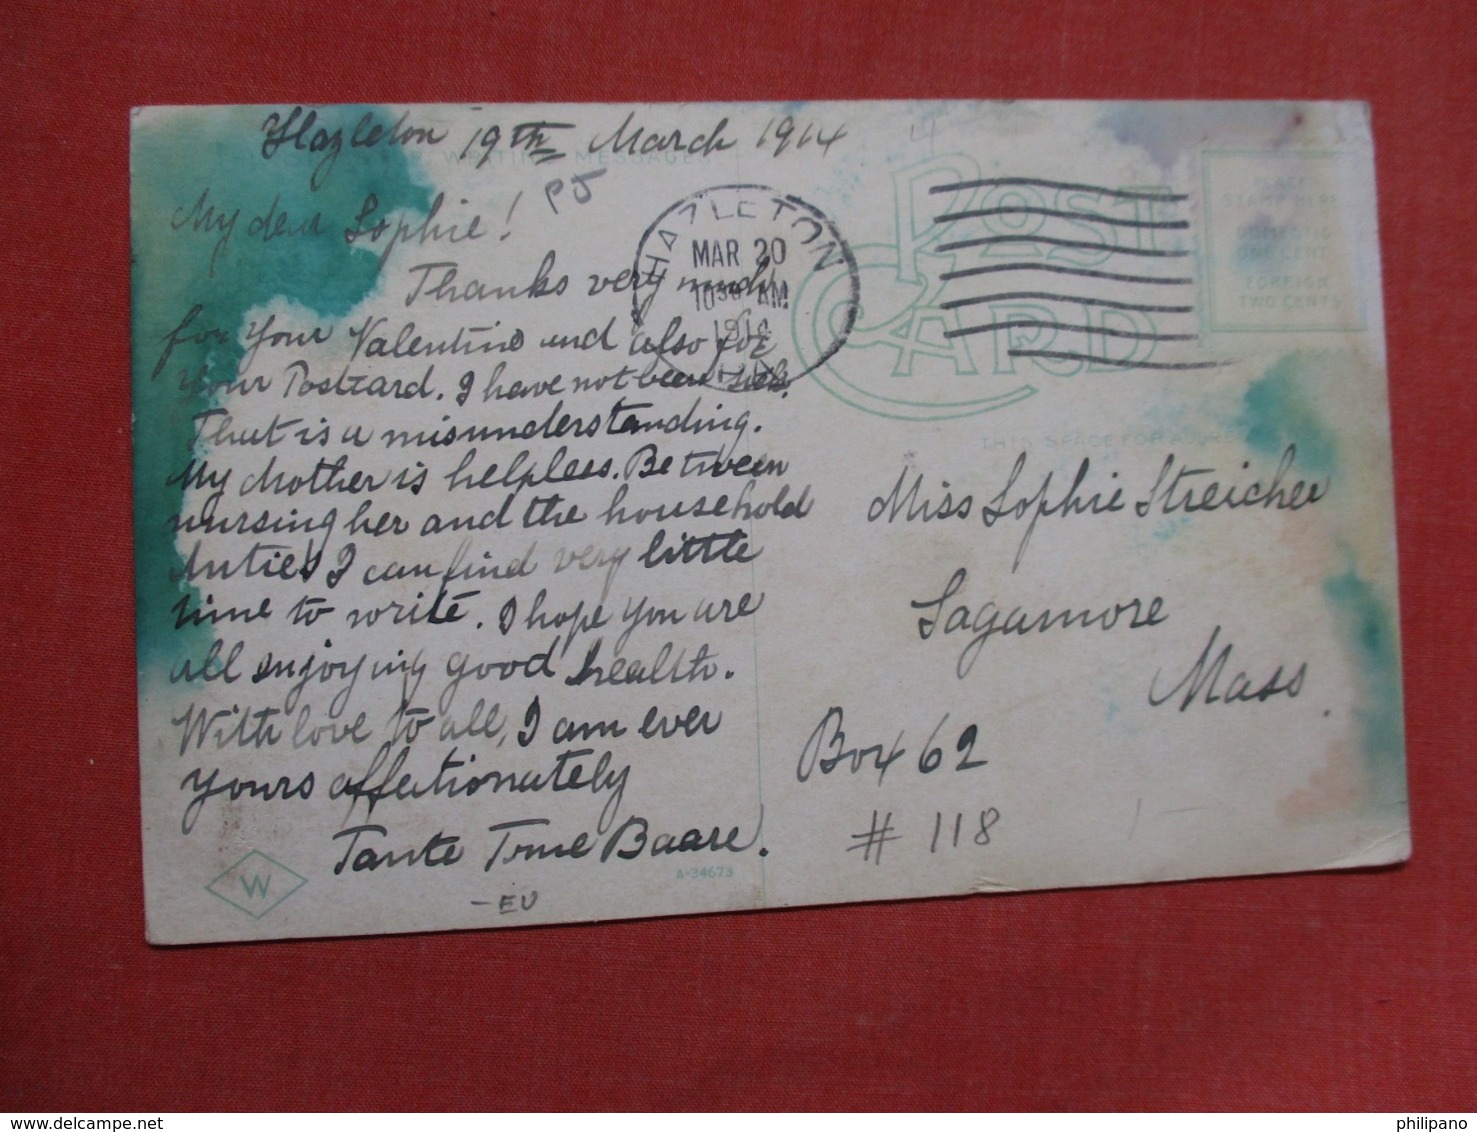 Hazleton 19th March 1914
WRITING MESSAGES
PJ
My dear Sophie!
Thanks very much
for your Valentine and also for
your Postcard. I have not been sick.
That is a misunderstanding.
My Mother is helpless. Between
nursing her and the household
duties I can find very little
time to write. I hope you are
all enjoying good health.
With love to all, I am ever
yours affectionately
Tante Baare.
W
A-34673
-EU
HAZLETON
MAR 20
10 30 AM
1914
POST
CARD
PLACE
STAMP HERE
DOMESTIC
ONE CENT
FOREIGN
TWO CENTS
THIS SPACE FOR ADDRE
Miss Sophie Streicher
Sagamore
Mass.
Box 62
# 118
philipano